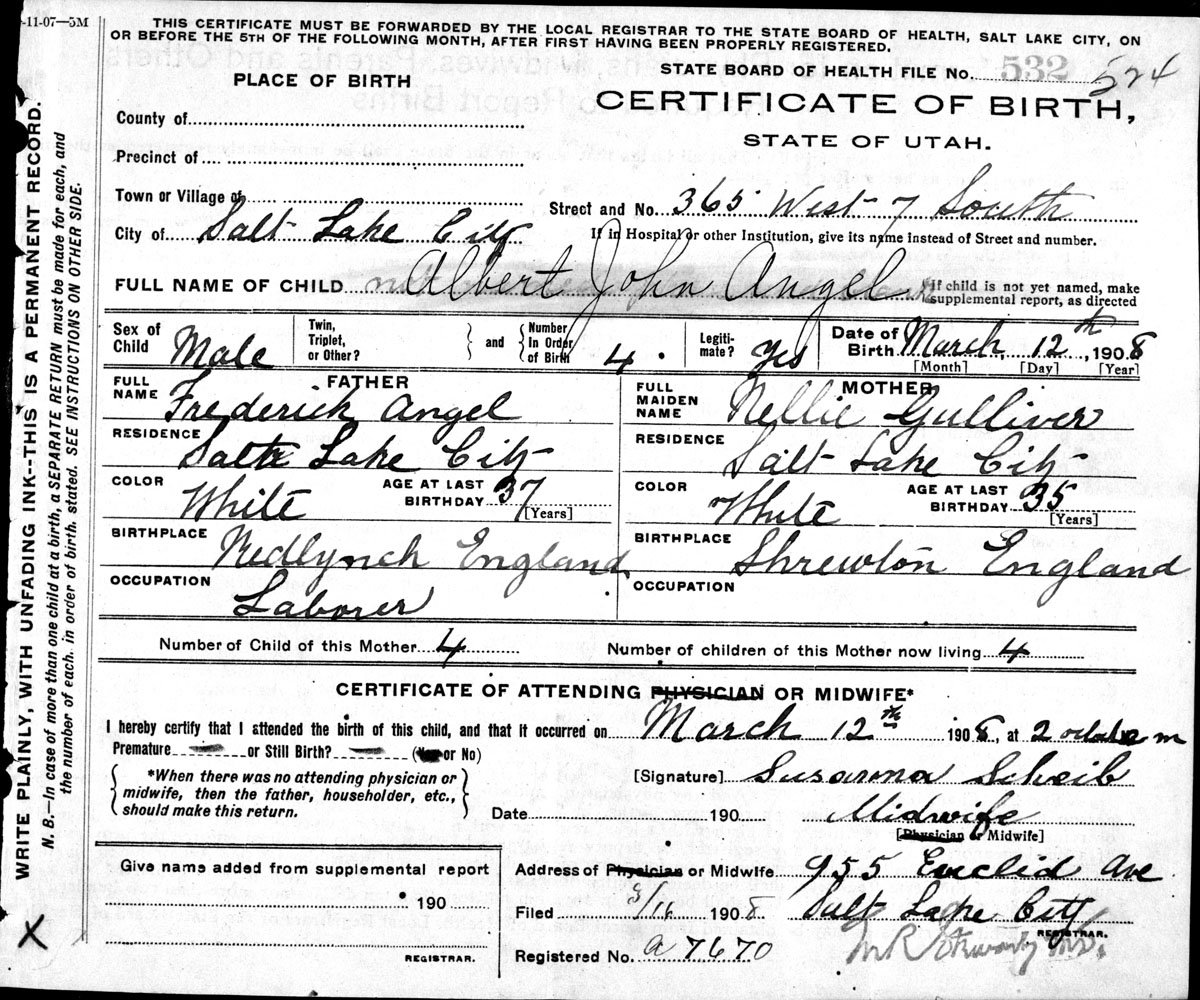 -11-07—5M
THIS CERTIFICATE MUST BE FORWARDED BY THE LOCAL REGISTRAR TO THE STATE BOARD OF HEALTH, SALT LAKE CITY, ON
OR BEFORE THE 5TH OF THE FOLLOWING MONTH, AFTER FIRST HAVING BEEN PROPERLY REGISTERED.
PLACE OF BIRTH
STATE BOARD OF HEALTH FILE No. 532 524
CERTIFICATE OF BIRTH,
STATE OF UTAH.
County of
Precinct of
Town or Village of
Street and No. 365 West 7 South
City of Salt Lake City
If in Hospital or other Institution, give its name instead of Street and number.
FULL NAME OF CHILD Albert John Angel
If child is not yet named, make
supplemental report, as directed
Sex of Child Male
Twin, Triplet, or Other?
and
Number In Order of Birth 4.
Legiti-mate? Yes
Date of Birth March 12th, 1908
[Month] [Day] [Year]
FATHER
FULL NAME Frederick Angel
RESIDENCE Salt Lake City
COLOR White
AGE AT LAST BIRTHDAY 37
[Years]
BIRTHPLACE Redlynch England
OCCUPATION Laborer
MOTHER
FULL MAIDEN NAME Nellie Gulliver
RESIDENCE Salt Lake City
COLOR White
AGE AT LAST BIRTHDAY 35
[Years]
BIRTHPLACE Shrewton England
OCCUPATION
Number of Child of this Mother 4
Number of children of this Mother now living 4
CERTIFICATE OF ATTENDING PHYSICIAN OR MIDWIFE*
I hereby certify that I attended the birth of this child, and that it occurred on March 12th 1908, at 2 m
Premature or Still Birth? (or No)
*When there was no attending physician or
midwife, then the father, householder, etc.,
should make this return.
[Signature] Susanna Scheib
Date 190 Midwife
[Physician or Midwife]
Give name added from supplemental report
190
REGISTRAR.
Address of Physician or Midwife 955 Euclid Ave
Filed 3/16 1908 Salt Lake City
REGISTRAR.
Registered No. a 7670
X
WRITE PLAINLY, WITH UNFADING INK--THIS IS A PERMANENT RECORD.
N. B.—In case of more than one child at a birth, a SEPARATE RETURN must be made for each, and
the number of each, in order of birth, stated. SEE INSTRUCTIONS ON OTHER SIDE.